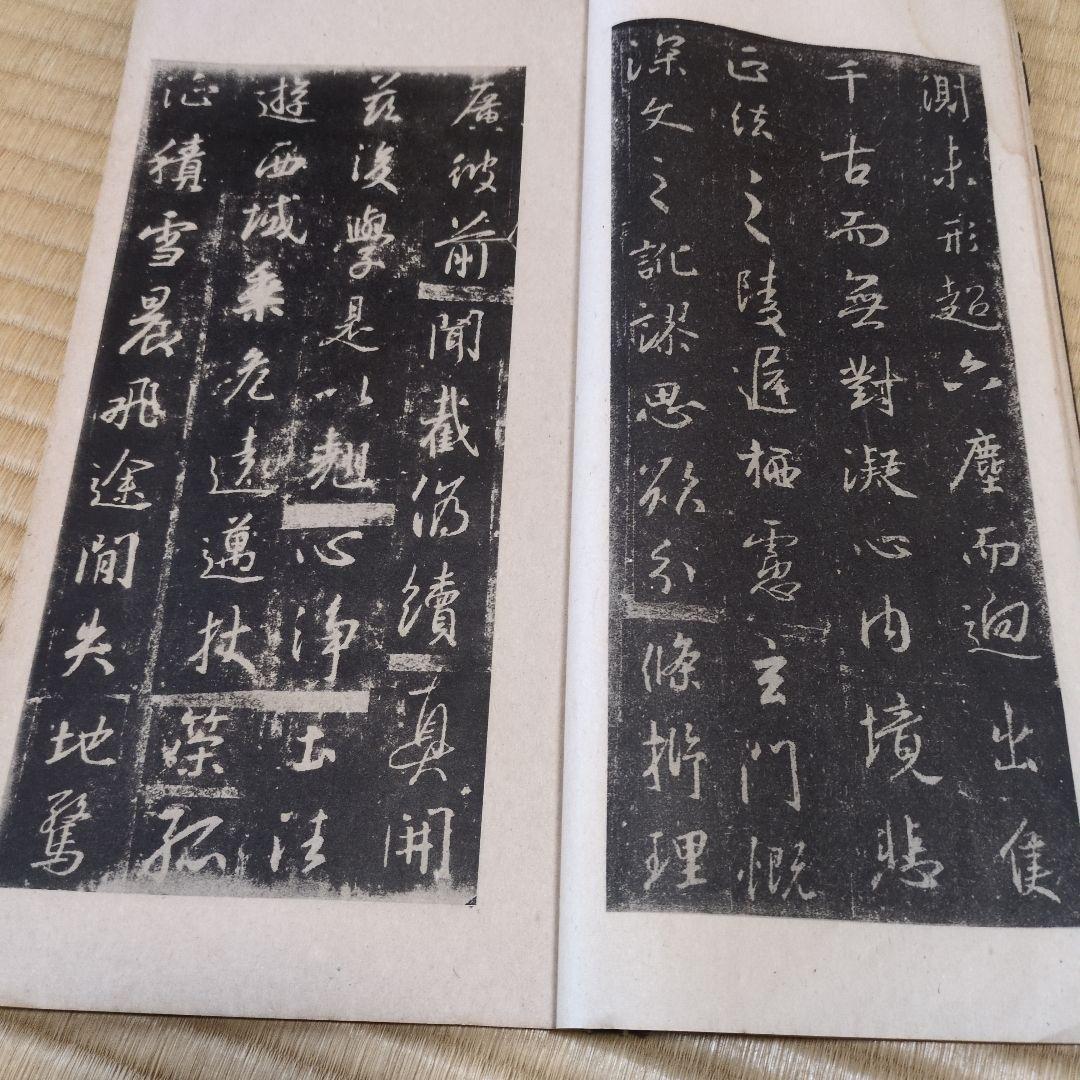 測未形超六塵而迥出隻
千古而無對凝心內境悲
正法之陵遲栖慮玄門慨
深文之訛謬思欲分條抑理
廣彼前聞截偽續真開
茲後學是以翹心淨土法
遊西域乘危遠邁杖策孤
征積雪晨飛途間失地驚